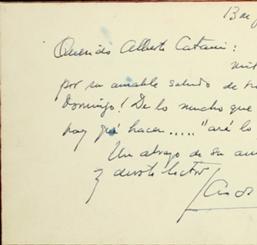 13 de
Querido Alberto Catani:
por su amable saludo de
Domingo! De lo mucho que
hay que hacer..... "aré lo
Un abrazo de su
y devoto lector